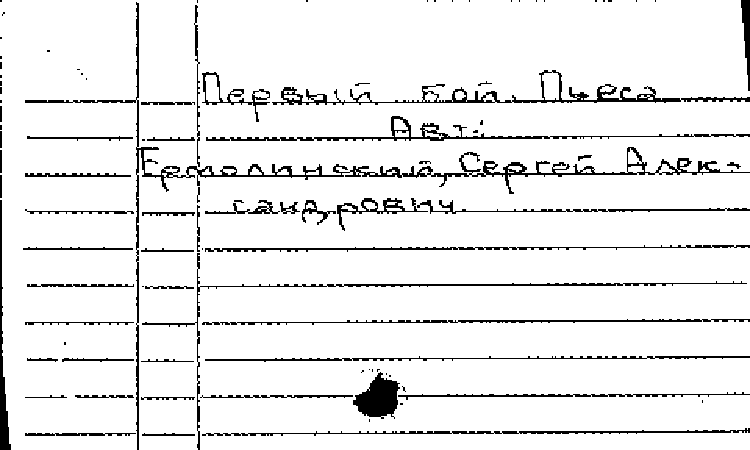 Первый бой. Пьеса
Авт.:
Ермолинский, Сергей Алек-
сандрович.